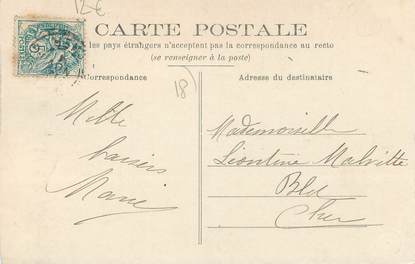 12€
CARTE POSTALE
les pays étrangers n'acceptent pas la correspondance au recto
(se renseigner à la poste)
Correspondance
Adresse du destinataire
18)
Mille
baisers
Marie
Mademoiselle
Léontine Malvitte
Bld
Cher